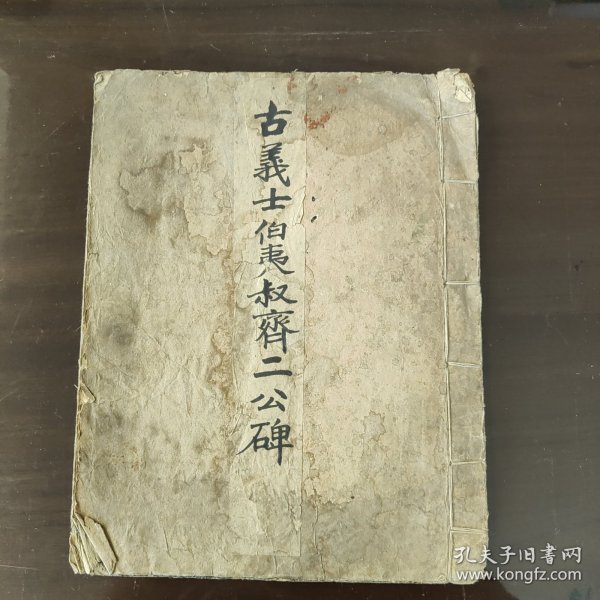 古義士伯夷叔齊二公碑
孔夫子旧書网
www.kongfz.com